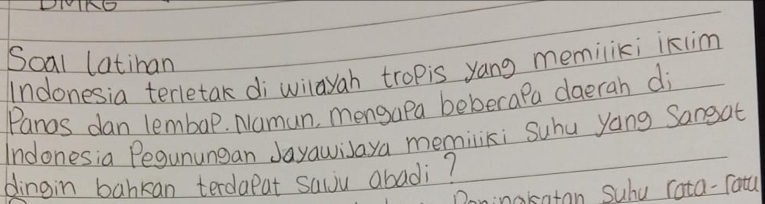 BMKG
Soal latihan
Indonesia terletak di wilayah tropis yang memiliki iklim
Panas dan lembap. Namun, mengapa beberapa daerah di
Indonesia Pegunungan Jayawijaya memiliki suhu yang sangat
dingin bahkan terdapat salju abadi?
Peningkatan suhu rata-rata